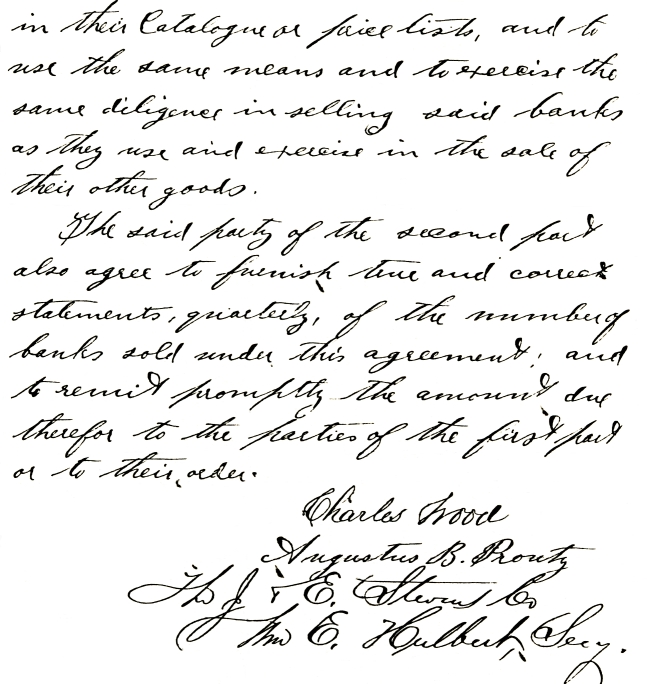 in their Catalogue or price lists, and to
use the same means and to exercise the
same diligence in selling said banks
as they use and exercise in the sale of
their other goods.
The said party of the second part
also agree to furnish true and correct
statements, quarterly, of the number of
banks sold under this agreement; and
to remit promptly the amount due
therefor to the parties of the first part
or to their order.
Charles Wood
Augustus B. Prouty
The J & E. Stevens Co
Wm E. Hulbert, Secy.